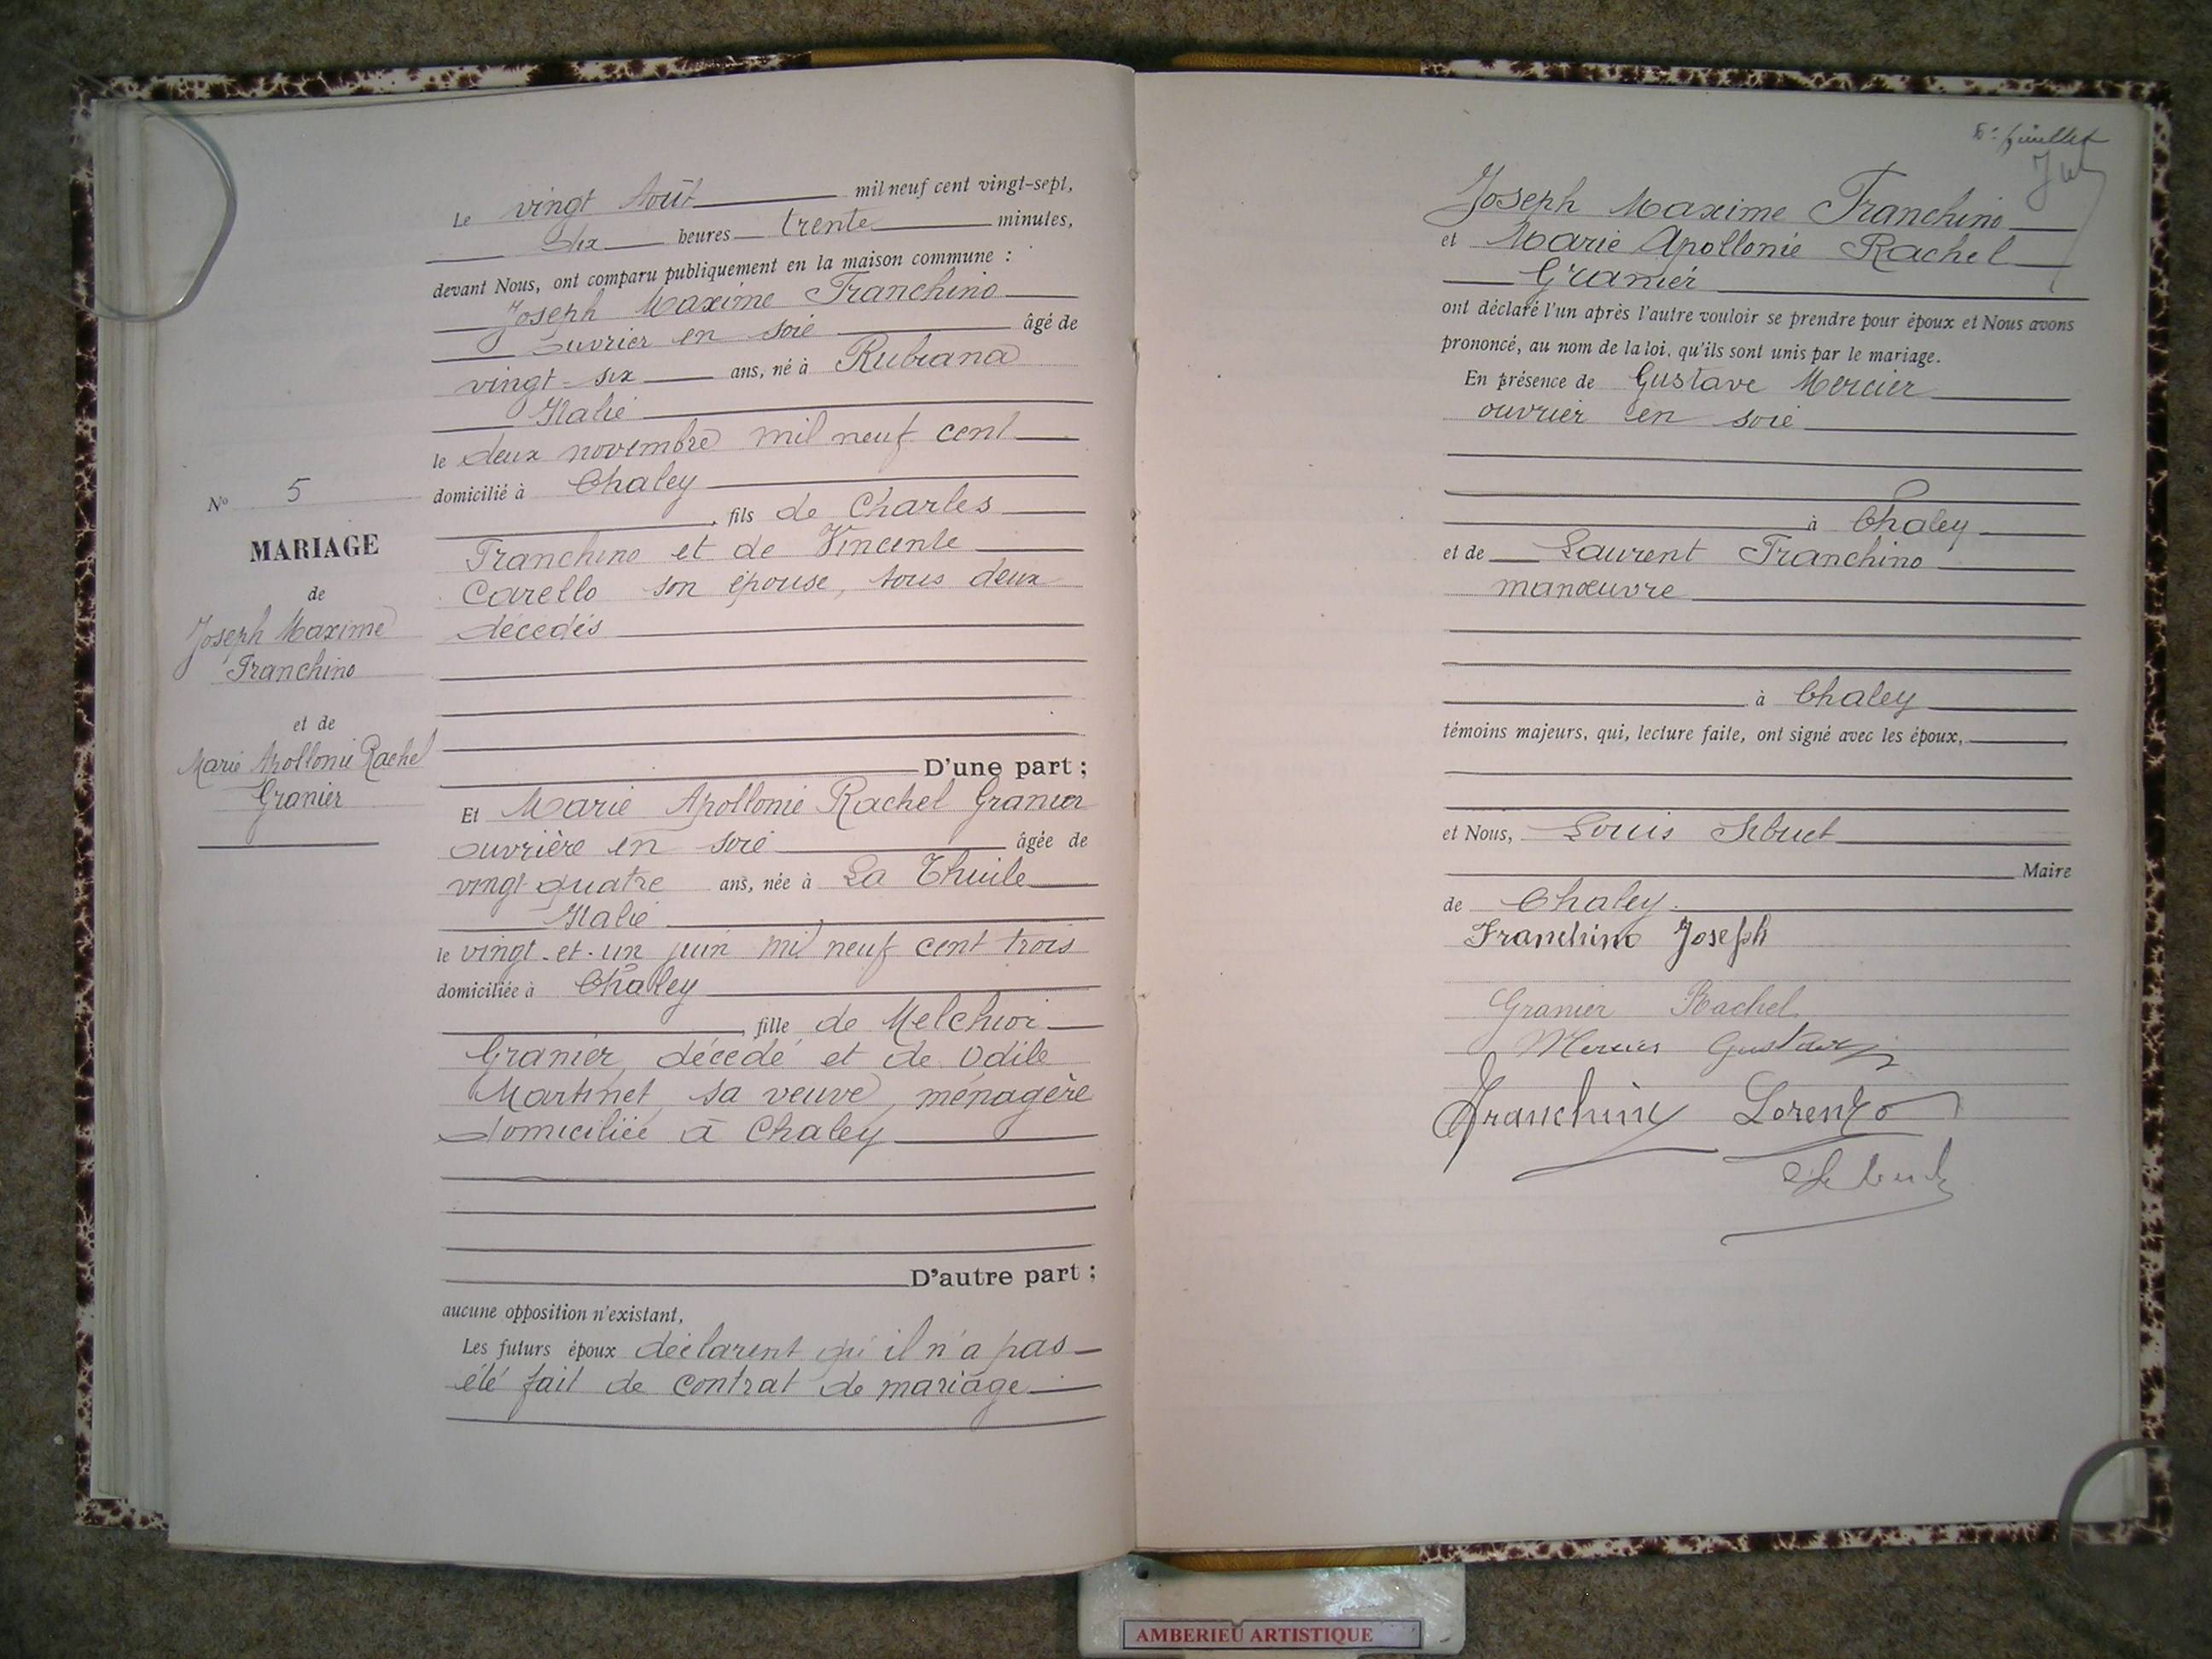 N° 5
MARIAGE
de
Joseph Maxime
Franchino
et de
Marie Apollonie Rachel
Granier
Le vingt Août mil neuf cent vingt-sept,
dix heures trente minutes,
devant Nous, ont comparu publiquement en la maison commune :
Joseph Maxime Franchino
ouvrier en soie âgé de
vingt-six ans, né à Rubiana
Italie
le deux novembre mil neuf cent
domicilié à Chaley
, fils de Charles
Franchino et de Vincente
Carello son épouse, tous deux
décédés
D'une part ;
Et Marie Apollonie Rachel Granier
ouvrière en soie âgée de
vingt-quatre ans, née à La Thuile
Italie
le vingt-et-un juin mil neuf cent trois
domiciliée à Chaley
, fille de Melchior
Granier, décédé et de Odile
Martinet, sa veuve, ménagère
domiciliée à Chaley
D'autre part ;
aucune opposition n'existant,
Les futurs époux déclarent qu'il n'a pas
été fait de contrat de mariage
feuillet
Joseph Maxime Franchino
et Marie Apollonie Rachel
Granier
ont déclaré l'un après l'autre vouloir se prendre pour époux et Nous avons
prononcé, au nom de la loi, qu'ils sont unis par le mariage.
En présence de Gustave Mercier
ouvrier en soie
à Chaley
et de Laurent Franchino
manœuvre
à Chaley
témoins majeurs, qui, lecture faite, ont signé avec les époux,
et Nous, Louis
Maire
de Chaley.
Franchino Joseph
Granier Rachel
Mercier Gustave
Franchino Lorenzo
AMBERIEU ARTISTIQUE